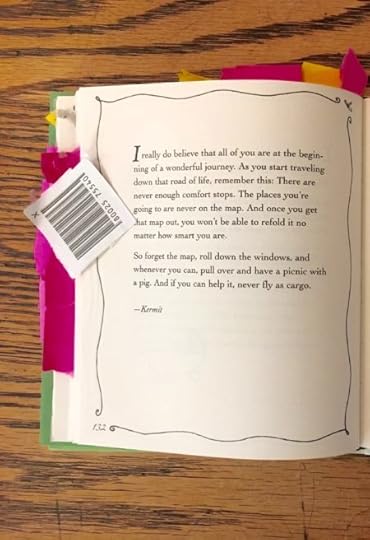 I really do believe that all of you are at the begin-
ning of a wonderful journey. As you start traveling
down that road of life, remember this: There are
never enough comfort stops. The places you're
going to are never on the map. And once you get
that map out, you won't be able to refold it no
matter how smart you are.
So forget the map, roll down the windows, and
whenever you can, pull over and have a picnic with
a pig. And if you can help it, never fly as cargo.
—Kermit
132